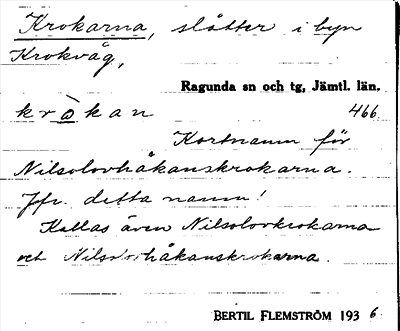 Krokarna, slåtter i byn
Krokvåg,
Ragunda sn och tg, Jämtl. län.
kròkan 466
Kortnamn för
Nilsolovhåkanskrokarna.
Jfr. detta namn!
Kallas även Nilsolovkrokarna
och Nilsolovhåkanskrokarna.
BERTIL FLEMSTRÖM 1936.